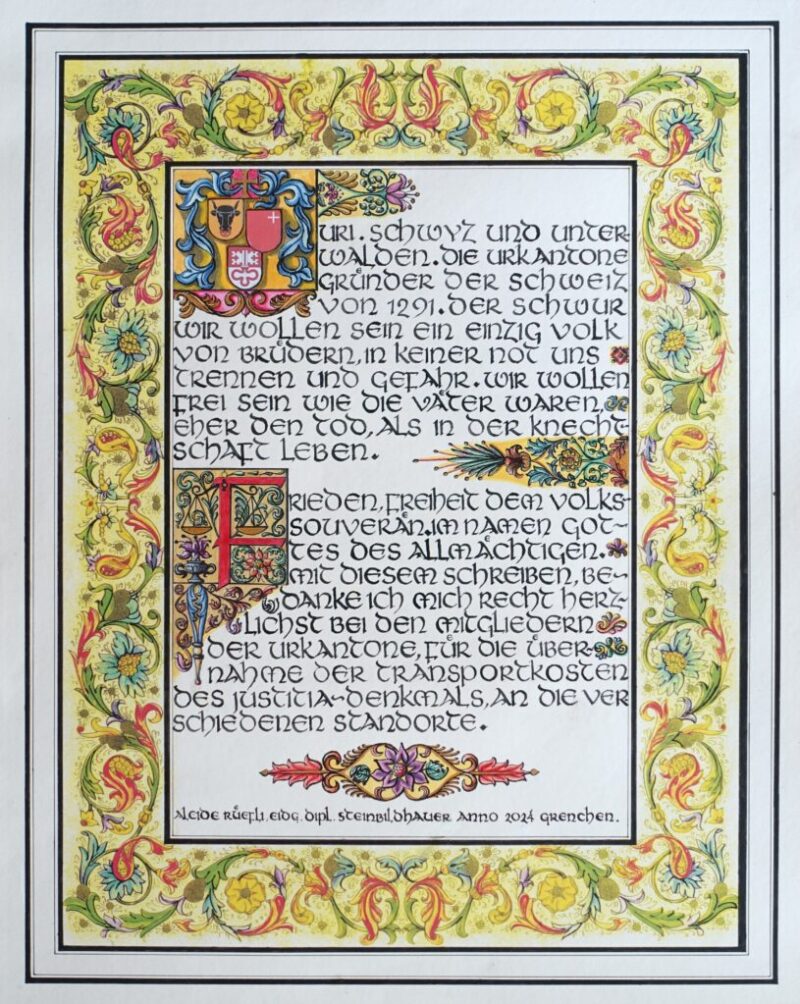 URI. SCHWYZ UND UNTER-
WALDEN. DIE URKANTONE
GRÜNDER DER SCHWEIZ
VON 1291. DER SCHWUR
WIR WOLLEN SEIN EIN EINZIG VOLK
VON BRÜDERN, IN KEINER NOT UNS
TRENNEN UND GEFAHR. WIR WOLLEN
FREI SEIN WIE DIE VÄTER WAREN,
EHER DEN TOD, ALS IN DER KNECHT
SCHAFT LEBEN.
FRIEDEN, FREIHEIT DEM VOLKS-
SOUVERÄN. IM NAMEN GOT-
TES DES ALLMÄCHTIGEN.
MIT DIESEM SCHREIBEN, BE-
DANKE ICH MICH RECHT HERZ-
LICHST BEI DEN MITGLIEDERN
DER URKANTONE, FÜR DIE ÜBER-
NAHME DER TRANSPORTKOSTEN
DES JUSTITIA-DENKMALS, AN DIE VER
SCHIEDENEN STANDORTE.
ALCIDE RÜEFLI, EIDG. DIPL. STEINBILDHAUER ANNO 2024 GRENCHEN.